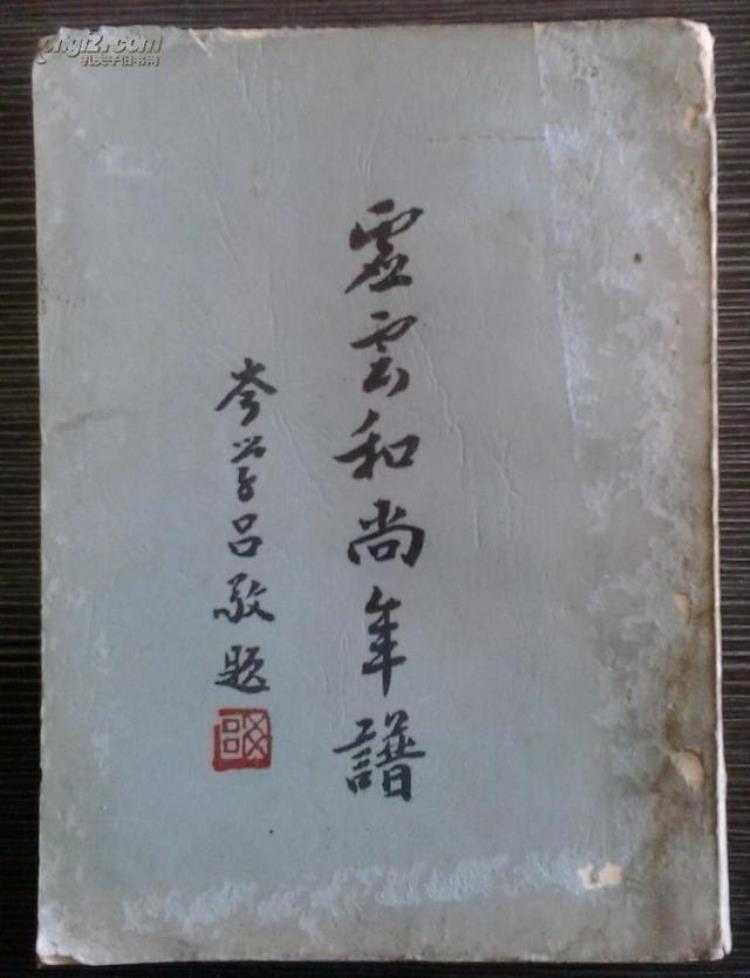 虛雲和尚年譜
岑學呂敬題
kongfz.com
孔夫子旧书网